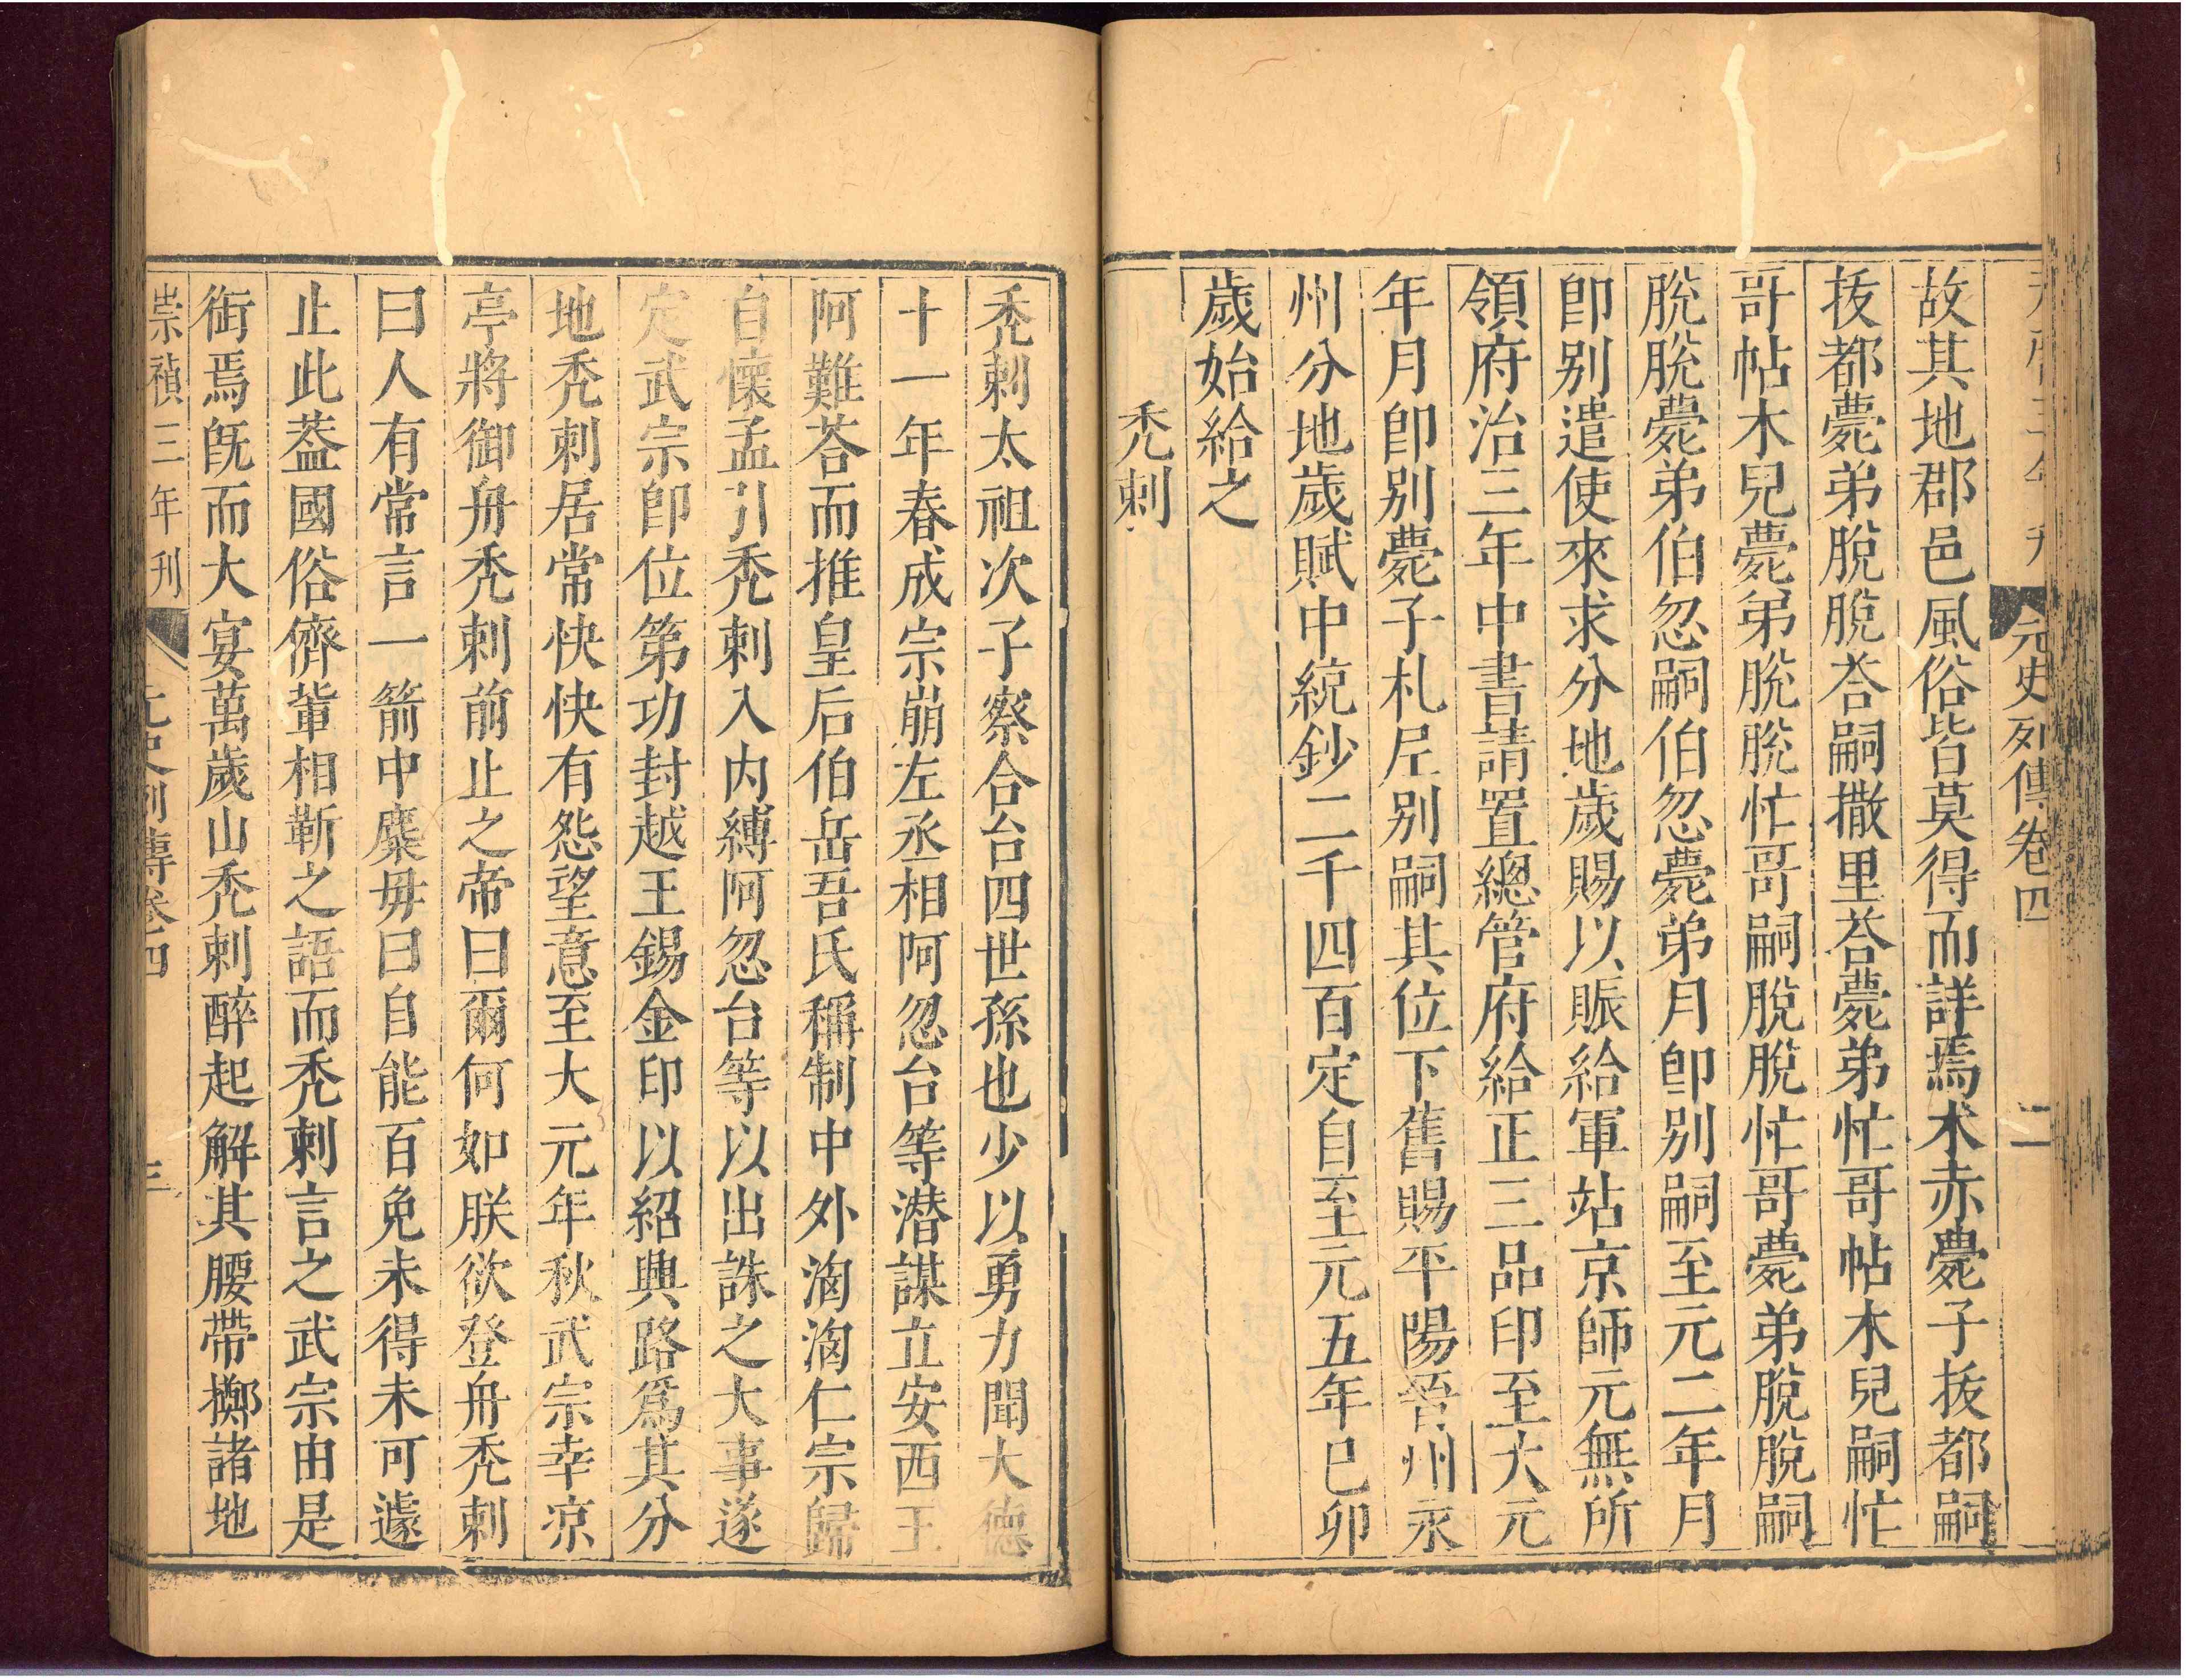 元史列傳卷四
二
故其地郡邑風俗皆莫得而詳焉术赤薨子拔都嗣
拔都薨弟脫脫荅嗣撒里荅薨弟忙哥帖木兒嗣忙
哥帖木兒薨弟脫脫忙哥嗣脫脫忙哥薨弟脫脫嗣
脫脫薨弟伯忽嗣伯忽薨弟月卽別嗣至元二年月
卽別遣使來求分地歲賜以賑給軍站京師元無所
領府治三年中書請置總管府給正三品印至大元
年月卽別薨子札尼別嗣其位下舊賜平陽晉州永
州分地歲賦中統鈔二千四百定自至元五年巳卯
歲始給之
禿剌
禿剌太祖次子察合台四世孫也少以勇力聞大德
十一年春成宗崩左丞相阿忽台等潛謀立安西王
阿難荅而推皇后伯岳吾氏稱制中外洶洶仁宗歸
自懷孟引禿剌入內縛阿忽台等以出誅之大事遂
定武宗卽位第功封越王錫金印以紹興路爲其分
地禿剌居常快快有怨望意至大元年秋武宗幸凉
亭將御舟禿剌前止之帝曰爾何如朕欲登舟禿剌
曰人有常言一箭中麋毋曰自能百兔未得未可遽
止此葢國俗儕輩相靳之語而禿剌言之武宗由是
銜焉旣而大宴萬歲山禿剌醉起解其腰帶擲諸地
崇禎三年刊
元史列傳卷四
三